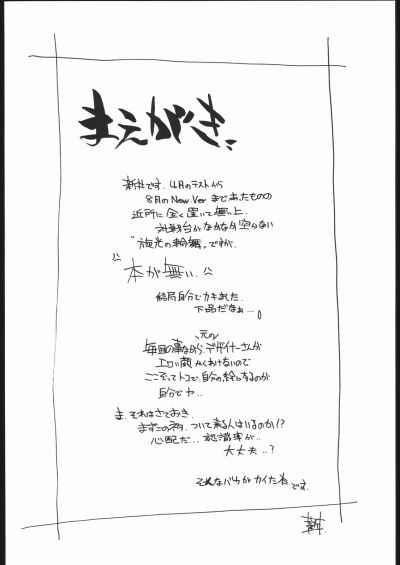 まえがき
新社です。4月のテストから
8月のNew.Verまであったものの
近所に全く置いて無い上、
対戦台がなかなか空かない
"旋光の輪舞"ですが、
本が無い。
結局自分でカキました。
下品だなぁ…。
元の
毎回の事ながら、デザイナーさんが
エロい顔かくわけないので
ここぞってトコで、自分の絵になるのが
自分でヤ..
ま、それはさておき。
まずこのネタ、ついて来る人はいるのか!?
心配だ… 認識率が..
大丈夫..?
そんなバカがカイた本です。